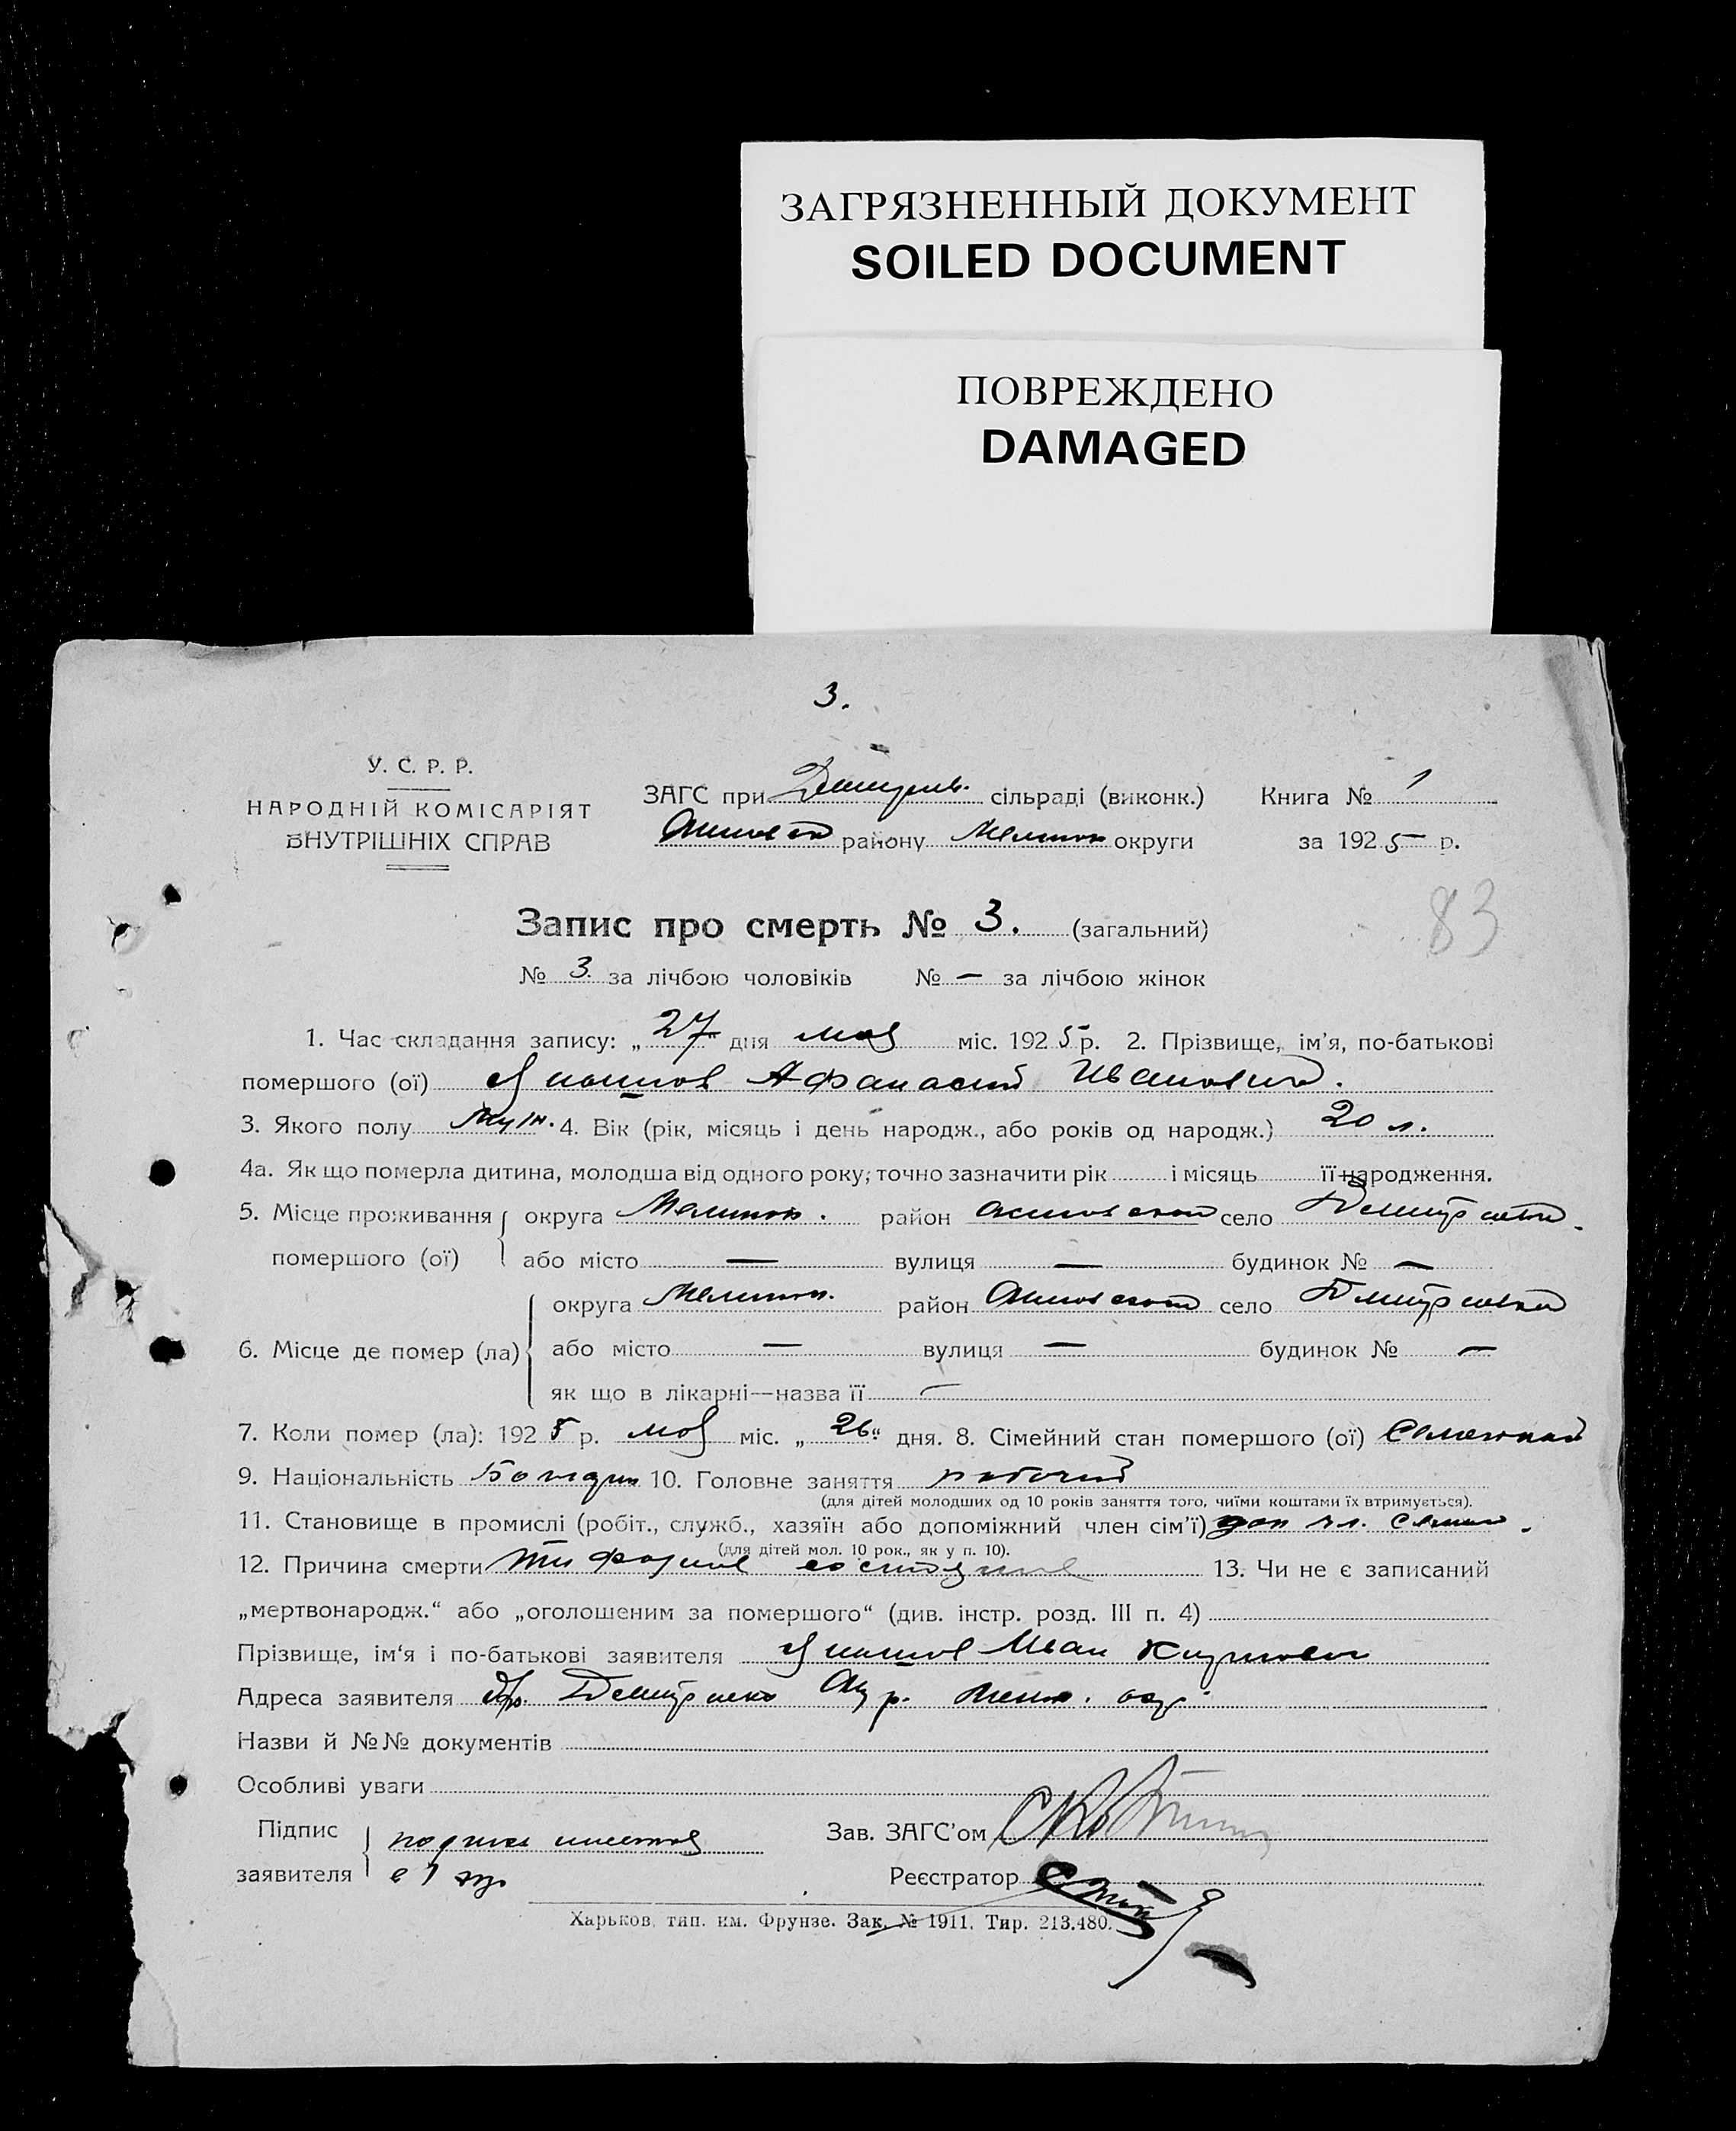 ЗАГРЯЗНЕННЫЙ ДОКУМЕНТ
SOILED DOCUMENT
ПОВРЕЖДЕНО
DAMAGED
3.
У. С. Р. Р.
НАРОДНІЙ КОМІСАРІЯТ
ВНУТРІШНІХ СПРАВ
ЗАГС при сільраді (виконк.) Книга № 1
району Мелитоп округи за 1925 р.
83
Запис про смерть № 3. (загальний)
№ 3. за лічбою чоловіків № — за лічбою жінок
1. Час складання запису: „27“ дня мая міс. 1925 р. 2. Прізвище, ім'я, по-батькові
помершого (ої) Афанасий Иванович.
3. Якого полу муж. 4. Вік (рік, місяць і день народж., або років од народж.) 20 л.
4а. Як що померла дитина, молодша від одного року; точно зазначити рік і місяць її народження.
5. Місце проживання округа Мелитоп. район село
помершого (ої) або місто — вулиця — будинок № —
округа Мелитоп. район село
6. Місце де помер (ла) або місто — вулиця — будинок № —
як що в лікарні—назва її —
7. Коли помер (ла): 1925 р. мая міс. „26“ дня. 8. Сімейний стан помершого (ої)
9. Національність 10. Головне заняття рабочий
(для дітей молодших од 10 років заняття того, чиїми коштами їх втримується).
11. Становище в промислі (робіт., служб., хазяїн або допоміжний член сім'ї) доп чл. семьи.
(для дітей мол. 10 рок., як у п. 10).
12. Причина смерти 13. Чи не є записаний
„мертвонародж.“ або „оголошеним за помершого“ (див. інстр. розд. III п. 4)
Прізвище, ім'я і по-батькові заявителя Иван
Адреса заявителя
Назви й №№ документів
Особливі уваги
Підпис
заявителя
Зав. ЗАГС'ом
Реєстратор
Харьков, тип. им. Фрунзе. Зак. № 1911. Тир. 213.480.